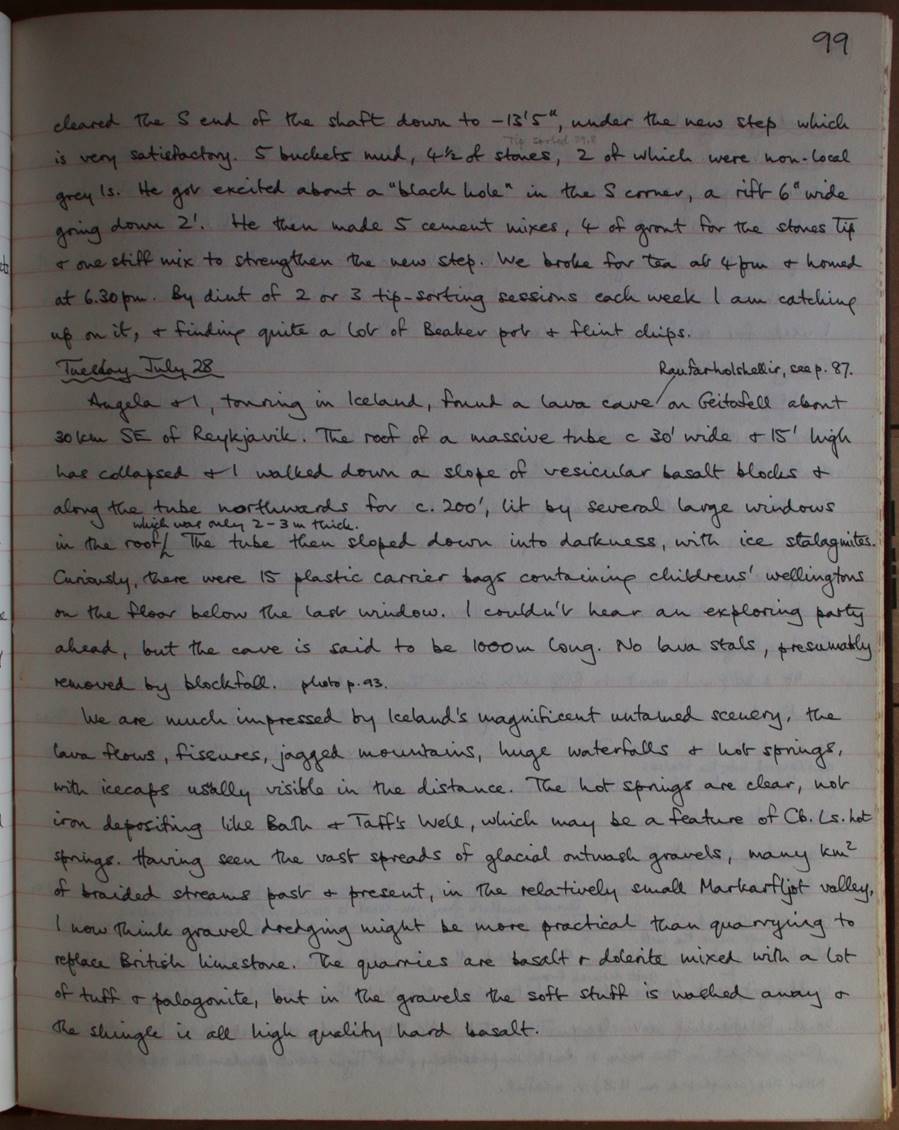 99
cleared the S end of the shaft down to -13'5", under the new step which
Tip sorted 29.8
is very satisfactory. 5 buckets mud, 4½ of stones, 2 of which were non-local
grey ls. He got excited about a "black hole" in the S corner, a rift 6" wide
going down 2'. He then made 5 cement mixes, 4 of grout for the stones Tip
& one stiff mix to strengthen the new step. We broke for tea at 4pm & homed
at 6.30pm. By dint of 2 or 3 tip-sorting sessions each week I am catching
up on it, & finding quite a lot of Beaker pot & flint chips.
Tuesday July 28
Raufarholshellir, see p. 87.
Angela & I, touring in Iceland, found a lava cave on Geitafell about
30km SE of Reykjavik. The roof of a massive tube c 30' wide & 15' high
has collapsed & I walked down a slope of vesicular basalt blocks &
along the tube northwards for c. 200', lit by several large windows
which was only 2-3 m thick.
in the roof. The tube then sloped down into darkness, with ice stalagmites.
Curiously, there were 15 plastic carrier bags containing childrens' wellingtons
on the floor below the last window. I couldn't hear an exploring party
ahead, but the cave is said to be 1000m long. No lava stals, presumably
removed by blockfall. photo p.93.
We are much impressed by Iceland's magnificent untamed scenery, the
lava flows, fissures, jagged mountains, huge waterfalls & hot springs,
with icecaps usually visible in the distance. The hot springs are clear, not
iron depositing like Bath & Taff's Well, which may be a feature of Cb. Ls. hot
springs. Having seen the vast spreads of glacial outwash gravels, many km²
of braided streams past & present, in the relatively small Markarfljot valley,
I now think gravel dredging might be more practical than quarrying to
replace British limestone. The quarries are basalt & dolerite mixed with a lot
of tuff & palagonite, but in the gravels the soft stuff is washed away &
the shingle is all high quality hard basalt.